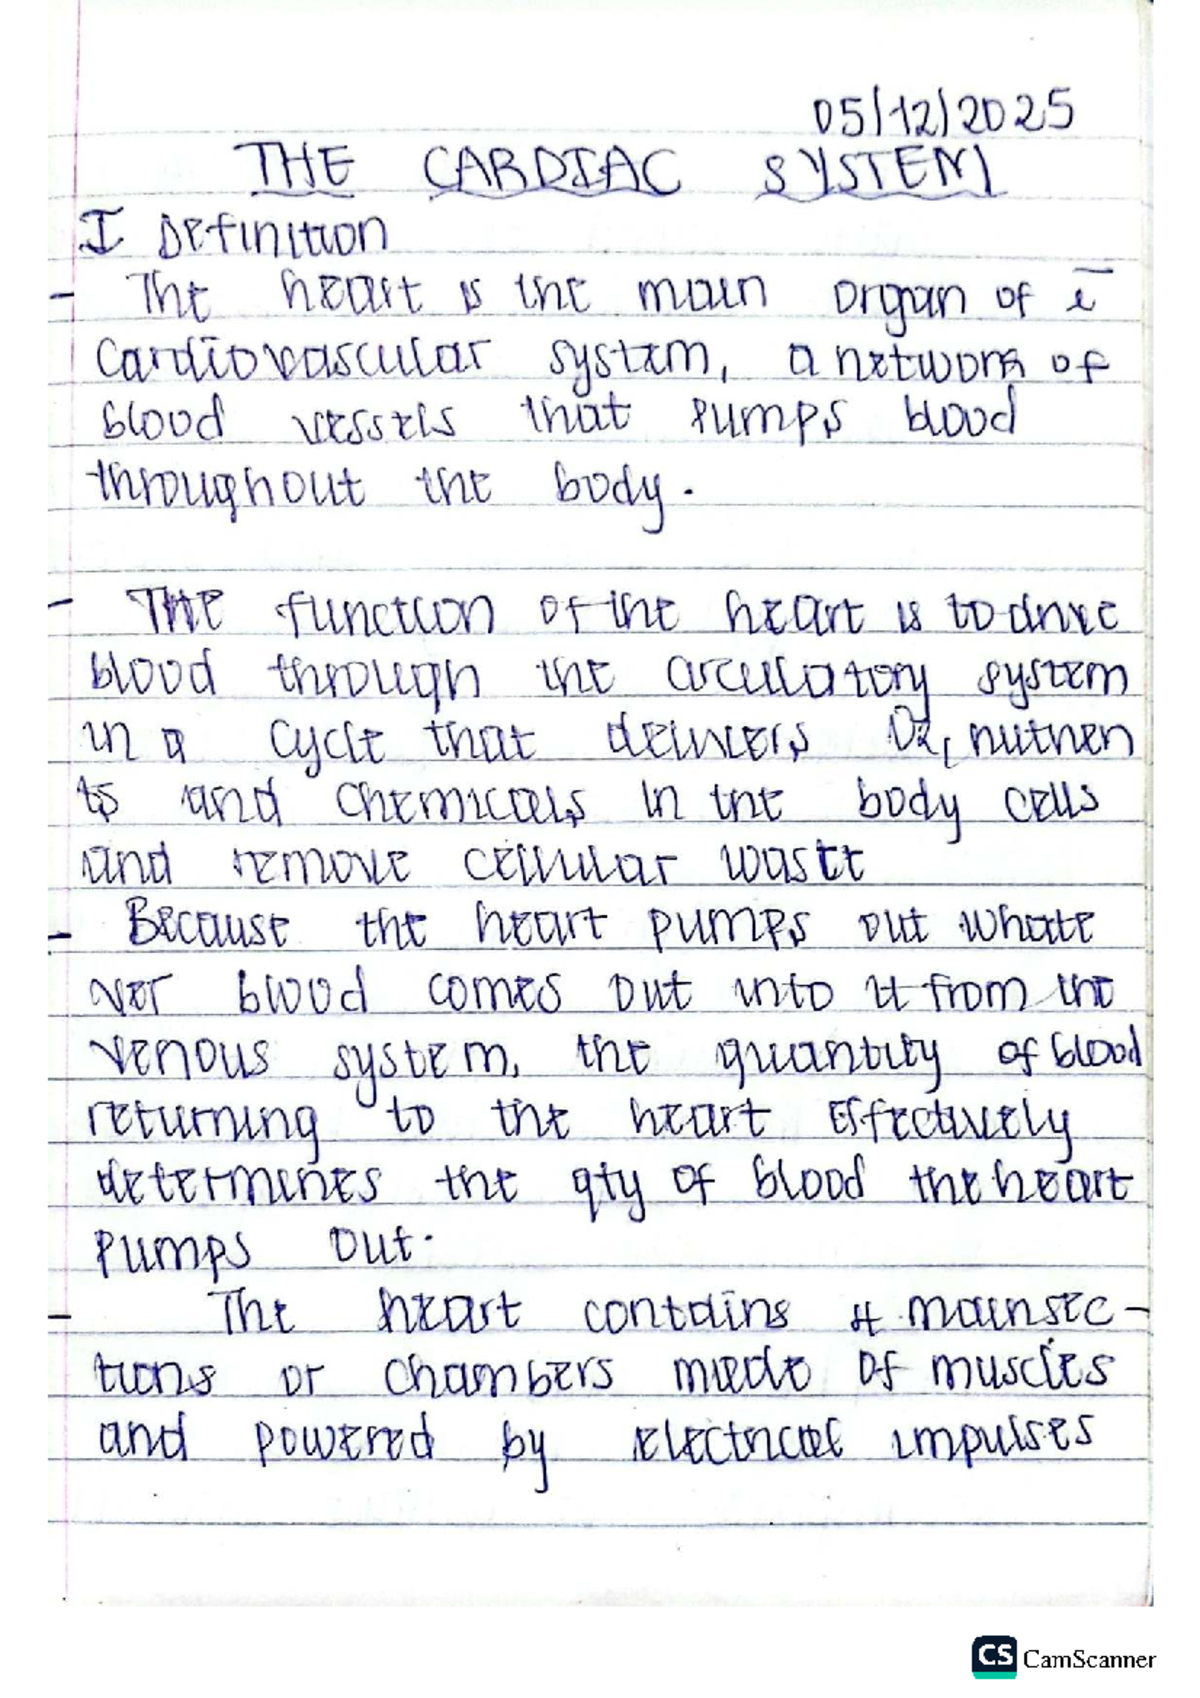 05/12/2025
THE CARDIAC SYSTEM
I Definition
- The heart is the main organ of
cardiovascular system, a network of
blood vessels that pumps blood
throughout the body.
- The function of the heart is to drive
blood through the circulatory system
in a cycle that delivers O2, nutrien
ts and chemicals in the body cells
and remove cellular waste
- Because the heart pumps out whate
ver blood comes out into it from the
venous system, the quantity of blood
returning to the heart effectively
determines the qty of blood the heart
pumps out.
- The heart contains 4 main sec-
tions or chambers made of muscles
and powered by electrical impulses
CS CamScanner